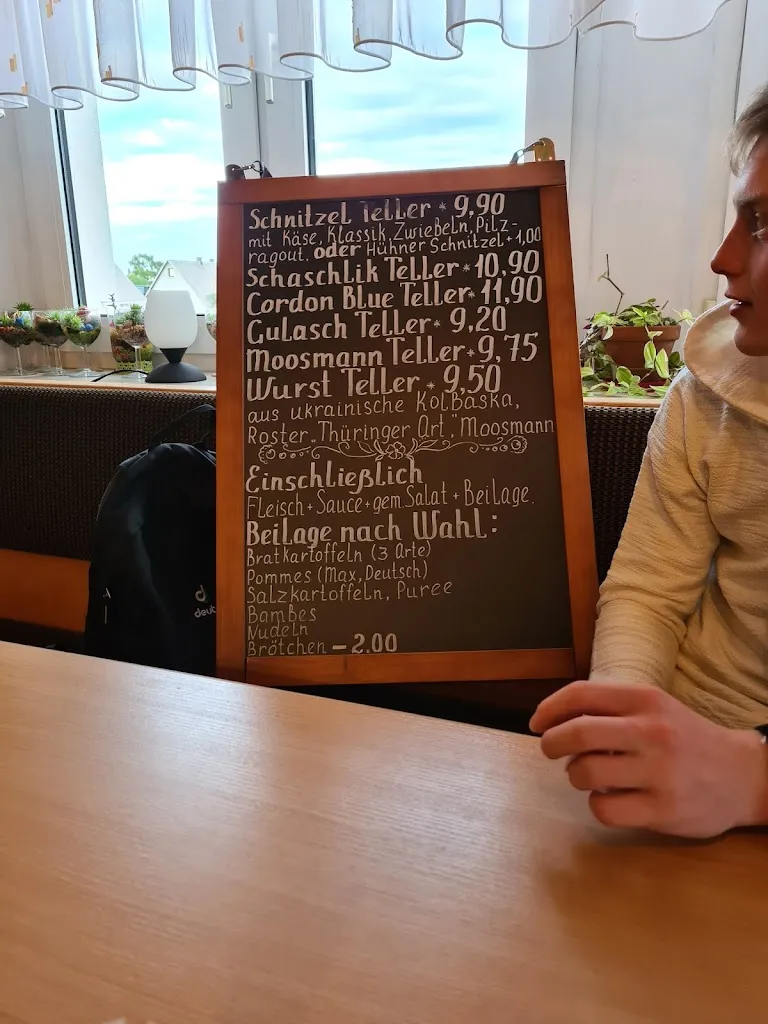 Schnitzel Teller * 9,90
mit Käse, Klassik, Zwiebeln, Pilz-
ragout. oder Hühner Schnitzel + 1,00
Schaschlik Teller * 10,90
Cordon Blue Teller * 11,90
Gulasch Teller * 9,20
Moosmann Teller * 9,75
Wurst Teller * 9,50
aus ukrainische Kolbaska,
Roster „Thüringer Art", Moosmann
Einschließlich
Fleisch + Sauce + gem. Salat + Beilage.
Beilage nach Wahl:
Bratkartoffeln (3 Arte)
Pommes (Max, Deutsch)
Salzkartoffeln, Puree
Bambes
Nudeln
Brötchen – 2,00
deut